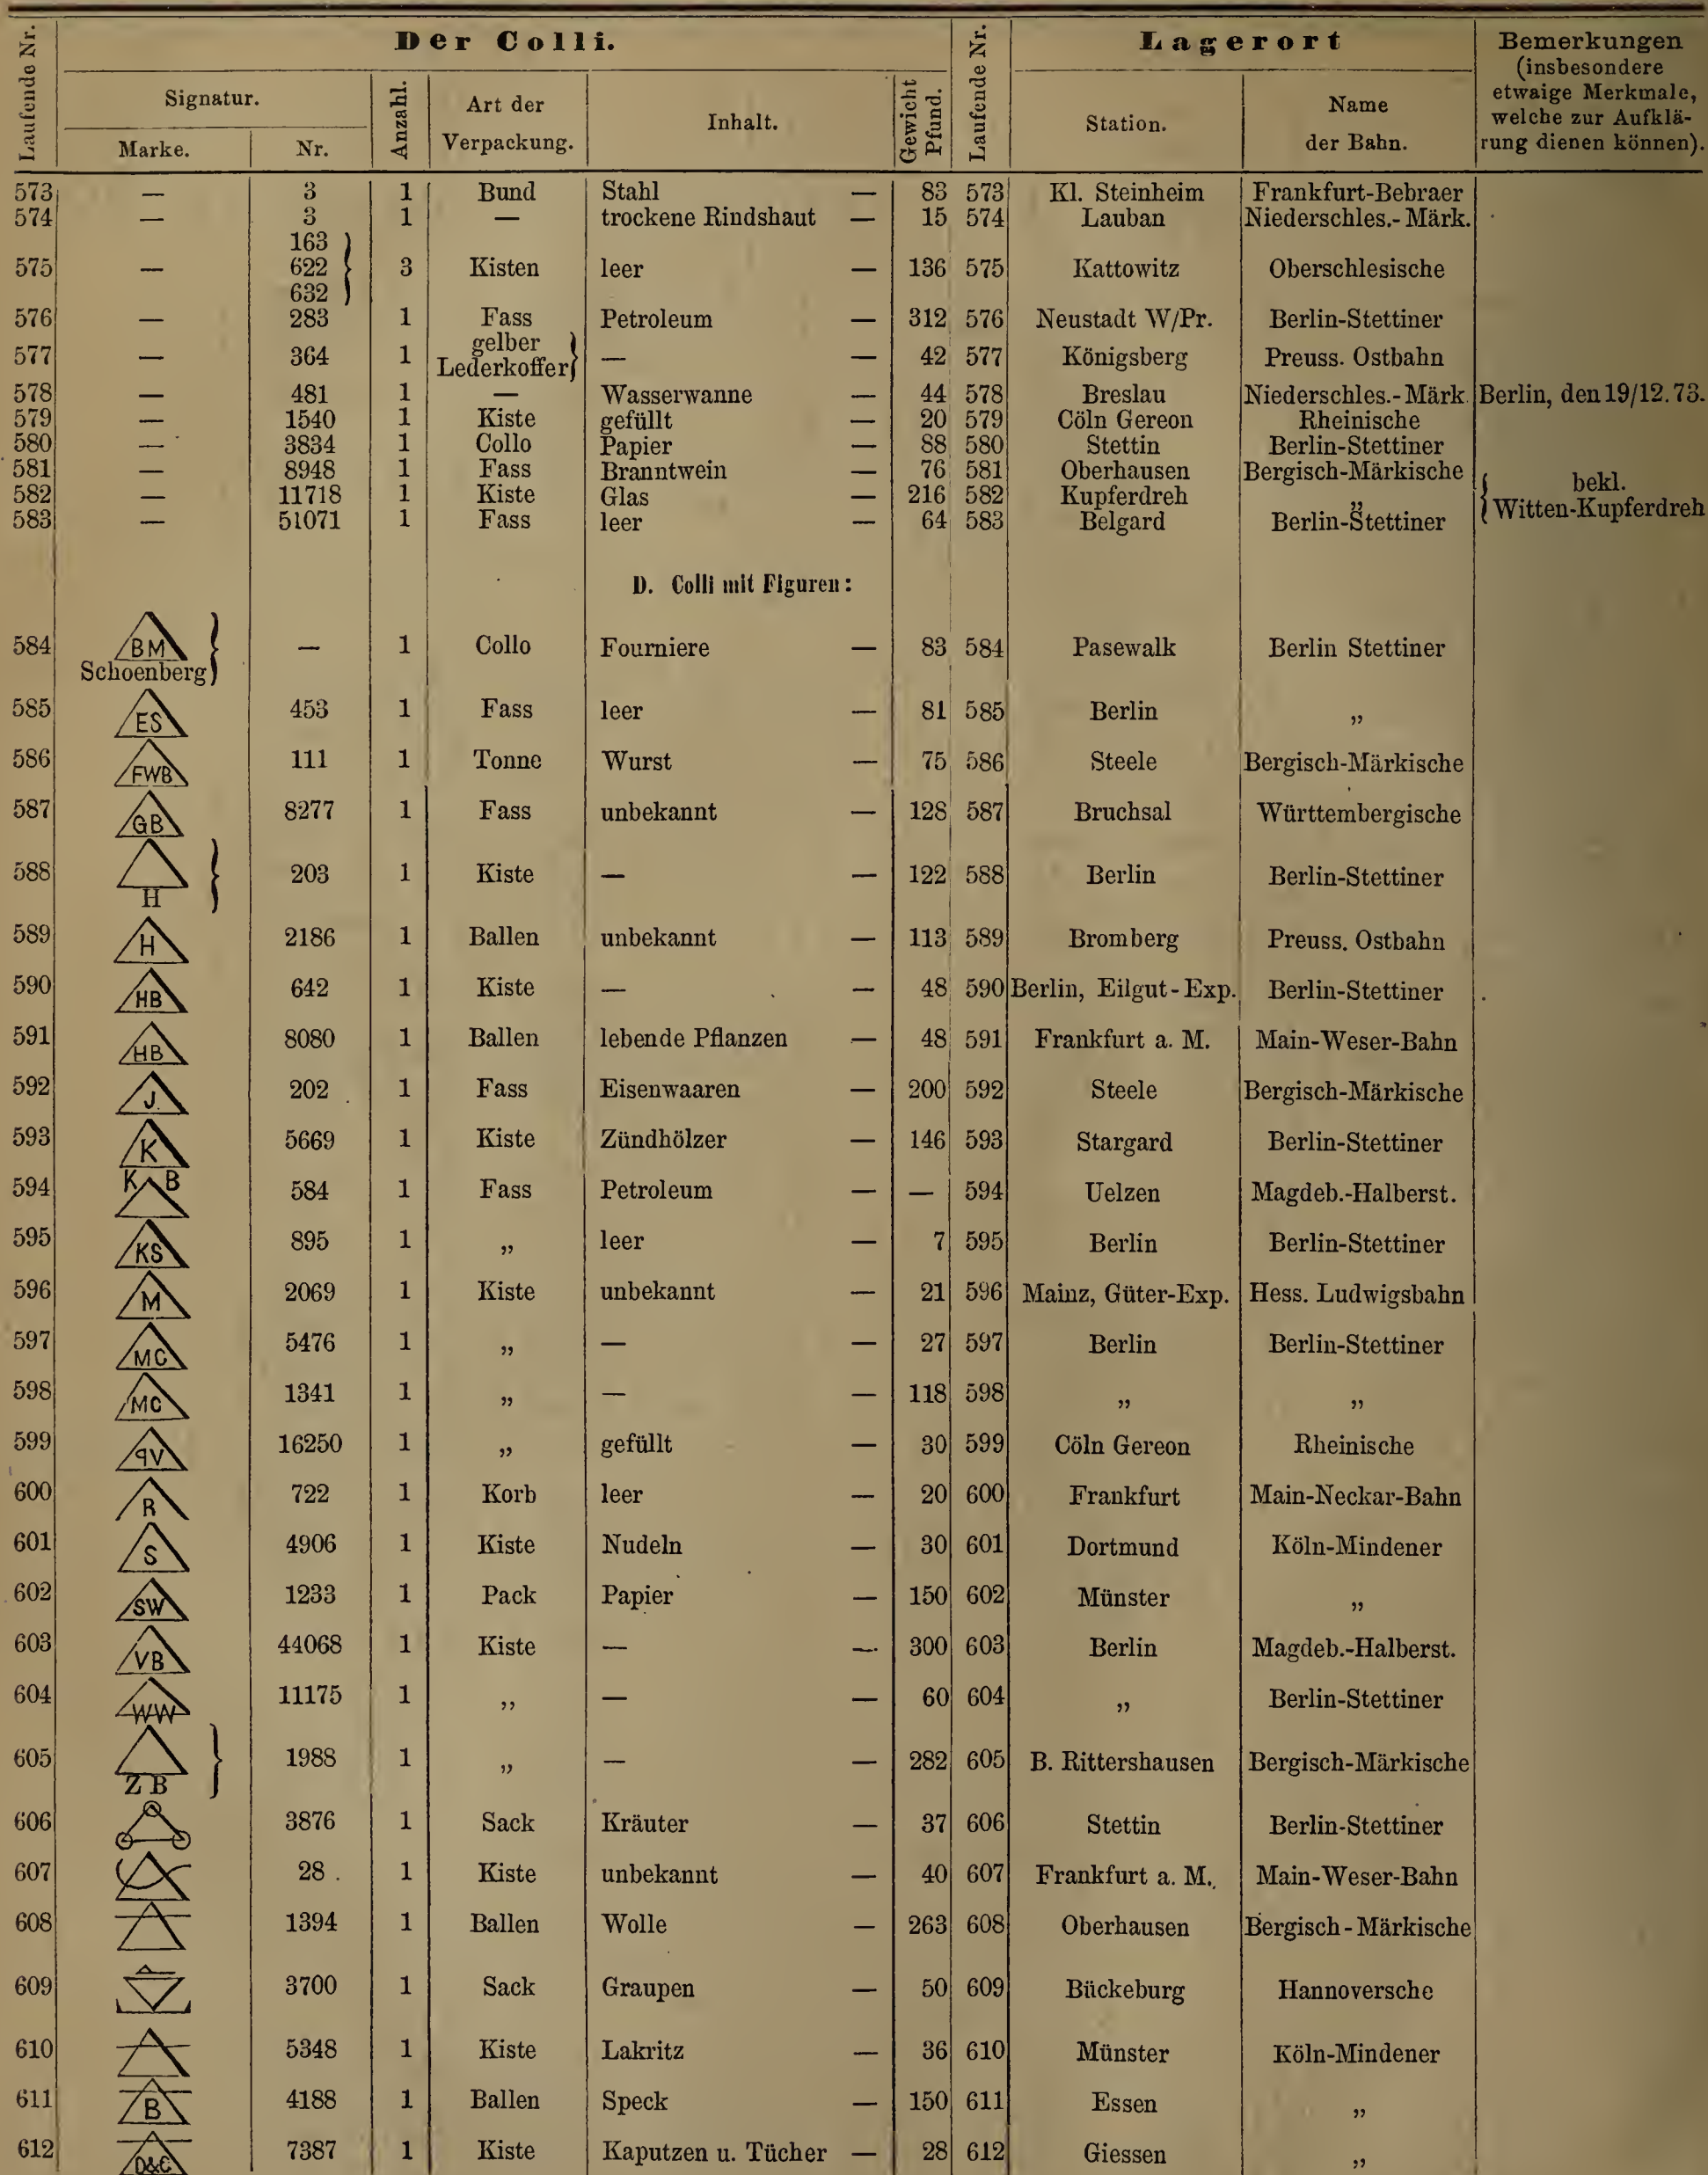 Laufende Nr. Der Colli. Laufende Nr. Lagerort Bemerkungen
(insbesondere
etwaige Merkmale,
welche zur Aufklä-
rung dienen können).
Signatur. Anzahl. Art der Verpackung. Inhalt. Gewicht Pfund. Station. Name der Bahn.
Marke. Nr.
573 — 3 1 Bund Stahl — 83 573 Kl. Steinheim Frankfurt-Bebraer
574 — 3 1 — trockene Rindshaut — 15 574 Lauban Niederschles.-Märk.
163
575 — 622 } 3 Kisten leer — 136 575 Kattowitz Oberschlesische
632
576 — 283 1 Fass Petroleum — 312 576 Neustadt W/Pr. Berlin-Stettiner
577 — 364 1 gelber Lederkoffer} — — 42 577 Königsberg Preuss. Ostbahn
578 — 481 1 — Wasserwanne — 44 578 Breslau Niederschles.-Märk. Berlin, den 19/12. 73.
579 — 1540 1 Kiste gefüllt — 20 579 Cöln Gereon Rheinische
580 — 3834 1 Collo Papier — 88 580 Stettin Berlin-Stettiner
581 — 8948 1 Fass Branntwein — 76 581 Oberhausen Bergisch-Märkische
582 — 11718 1 Kiste Glas — 216 582 Kupferdreh „ { bekl. Witten-Kupferdreh
583 — 51071 1 Fass leer — 64 583 Belgard Berlin-Stettiner
D. Colli mit Figuren:
584 BM Schoenberg} — 1 Collo Fourniere — 83 584 Pasewalk Berlin Stettiner
585 ES 453 1 Fass leer — 81 585 Berlin „
586 FWB 111 1 Tonne Wurst — 75 586 Steele Bergisch-Märkische
587 GB 8277 1 Fass unbekannt — 128 587 Bruchsal Württembergische
588 H } 203 1 Kiste — — 122 588 Berlin Berlin-Stettiner
589 H 2186 1 Ballen unbekannt — 113 589 Bromberg Preuss. Ostbahn
590 HB 642 1 Kiste — — 48 590 Berlin, Eilgut-Exp. Berlin-Stettiner
591 HB 8080 1 Ballen lebende Pflanzen — 48 591 Frankfurt a. M. Main-Weser-Bahn
592 J. 202 1 Fass Eisenwaaren — 200 592 Steele Bergisch-Märkische
593 K 5669 1 Kiste Zündhölzer — 146 593 Stargard Berlin-Stettiner
594 K B 584 1 Fass Petroleum — — 594 Uelzen Magdeb.-Halberst.
595 KS 895 1 „ leer — 7 595 Berlin Berlin-Stettiner
596 M 2069 1 Kiste unbekannt — 21 596 Mainz, Güter-Exp. Hess. Ludwigsbahn
597 MC 5476 1 „ — — 27 597 Berlin Berlin-Stettiner
598 MC 1341 1 „ — — 118 598 „ „
599 qV 16250 1 „ gefüllt — 30 599 Cöln Gereon Rheinische
600 R 722 1 Korb leer — 20 600 Frankfurt Main-Neckar-Bahn
601 S 4906 1 Kiste Nudeln — 30 601 Dortmund Köln-Mindener
602 SW 1233 1 Pack Papier — 150 602 Münster „
603 VB 44068 1 Kiste — — 300 603 Berlin Magdeb.-Halberst.
604 WW 11175 1 „ — — 60 604 „ Berlin-Stettiner
605 Z B } 1988 1 „ — — 282 605 B. Rittershausen Bergisch-Märkische
606 3876 1 Sack Kräuter — 37 606 Stettin Berlin-Stettiner
607 28 1 Kiste unbekannt — 40 607 Frankfurt a. M. Main-Weser-Bahn
608 1394 1 Ballen Wolle — 263 608 Oberhausen Bergisch-Märkische
609 3700 1 Sack Graupen — 50 609 Bückeburg Hannoversche
610 5348 1 Kiste Lakritz — 36 610 Münster Köln-Mindener
611 B 4188 1 Ballen Speck — 150 611 Essen „
612 D&C 7387 1 Kiste Kaputzen u. Tücher — 28 612 Giessen „